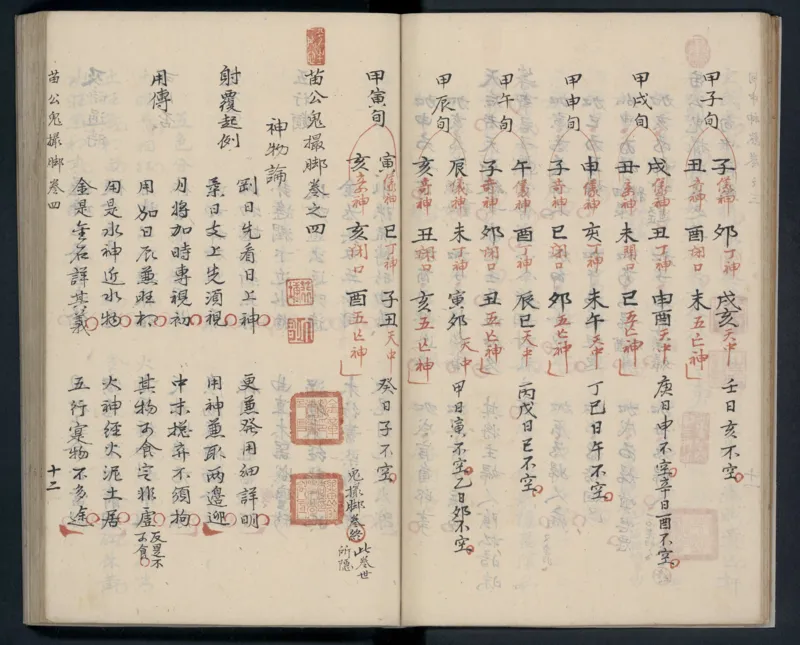 甲子旬 子儀神 卯丁神 戌亥天中 壬日亥不空
丑奇神 酉閉口 未五亡神
甲戌旬 戌儀神 丑丁神 申酉天中 庚日申不空辛日酉不空
丑奇神 未閉口 巳五亡神
甲申旬 申儀神 亥丁神 未午天中 丁巳日午不空
子奇神 巳閉口 卯五亡神
甲午旬 午儀神 酉丁神 辰巳天中 丙戊日巳不空
子奇神 卯閉口 丑五亡神
甲辰旬 辰儀神 未丁神 寅卯天中 甲日寅不空乙日卯不空
亥奇神 丑閉口 亥五亡神
甲寅旬 寅儀神 巳丁神 子丑天中 癸日子不空
亥奇神 亥閉口 酉五亡神 鬼撮脚卷終 此卷世所隱
苗公鬼撮脚卷之四
神物論
射覆起例 剛日先看日上神 更兼發用細詳明
柔日支上先須視 用神兼取兩邊迎
月將加時專視初 中末 弃不須拘
用傳 用如日辰兼旺相 其物可食定非虛 反是不可食
用是水神近水物 火神經火泥土居
金是金名詳其義 五行寔物不多途
苗公鬼撮脚卷四 十二